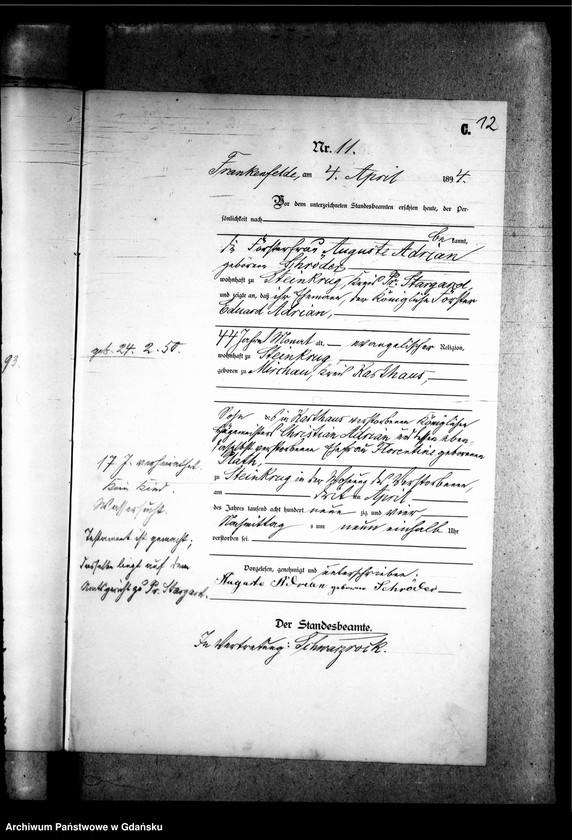 C. 12
Nr. 11.
Frankenfelde, am 4. April 1894.
Vor dem unterzeichneten Standesbeamten erschien heute, der Per-
sönlichkeit nach
be kannt,
die Försterfrau Auguste Adrian
geborene Schröder
wohnhaft zu Steinkrug, Kreis Pr. Stargard,
und zeigte an, daß ihr Ehemann, der Königliche Förster
Eduard Adrian,
44 Jahre Monat alt, evangelischer Religion,
wohnhaft zu Steinkrug,
geboren zu Mirchau, Kreis Karthaus,
Sohn des in Karthaus verstorbenen Königlichen
Hegemeisters Christian Adrian und dessen eben-
daselbst verstorbenen Ehefrau Florentine geborenen
Plath,
zu Steinkrug in der Wohnung des Verstorbenen,
am dritten April
des Jahres tausend acht hundert neunzig und vier,
Nachmittag s um neun einhalb Uhr
verstorben sei.
Vorgelesen, genehmigt und unterschrieben.
Auguste Adrian geborene Schröder
Der Standesbeamte.
In Vertretung: Schwarzrock.
93.
geb. 24. 2. 50.
17 J. verheirathet.
Kein Kind.
Wassersucht.
Testament ist gemacht;
dasselbe liegt auf dem
Amtsgericht zu Pr. Stargard.
Archiwum Państwowe w Gdańsku